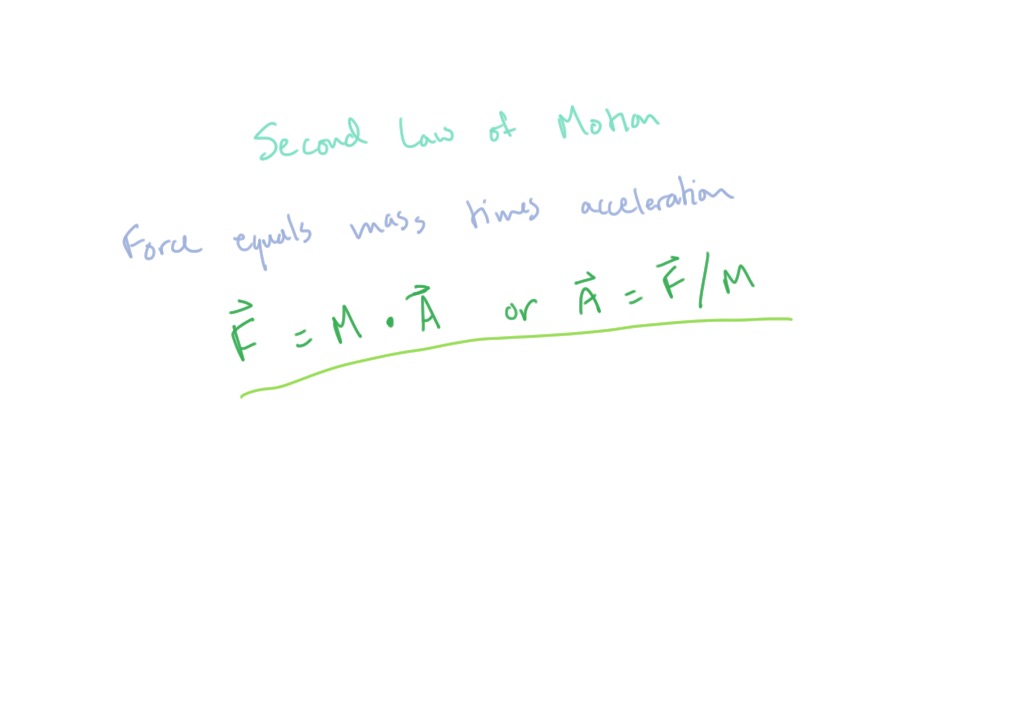 Second Law of Motion
Force equals mass times acceleration
F⃗ = M · A⃗ or A⃗ = F⃗ / M